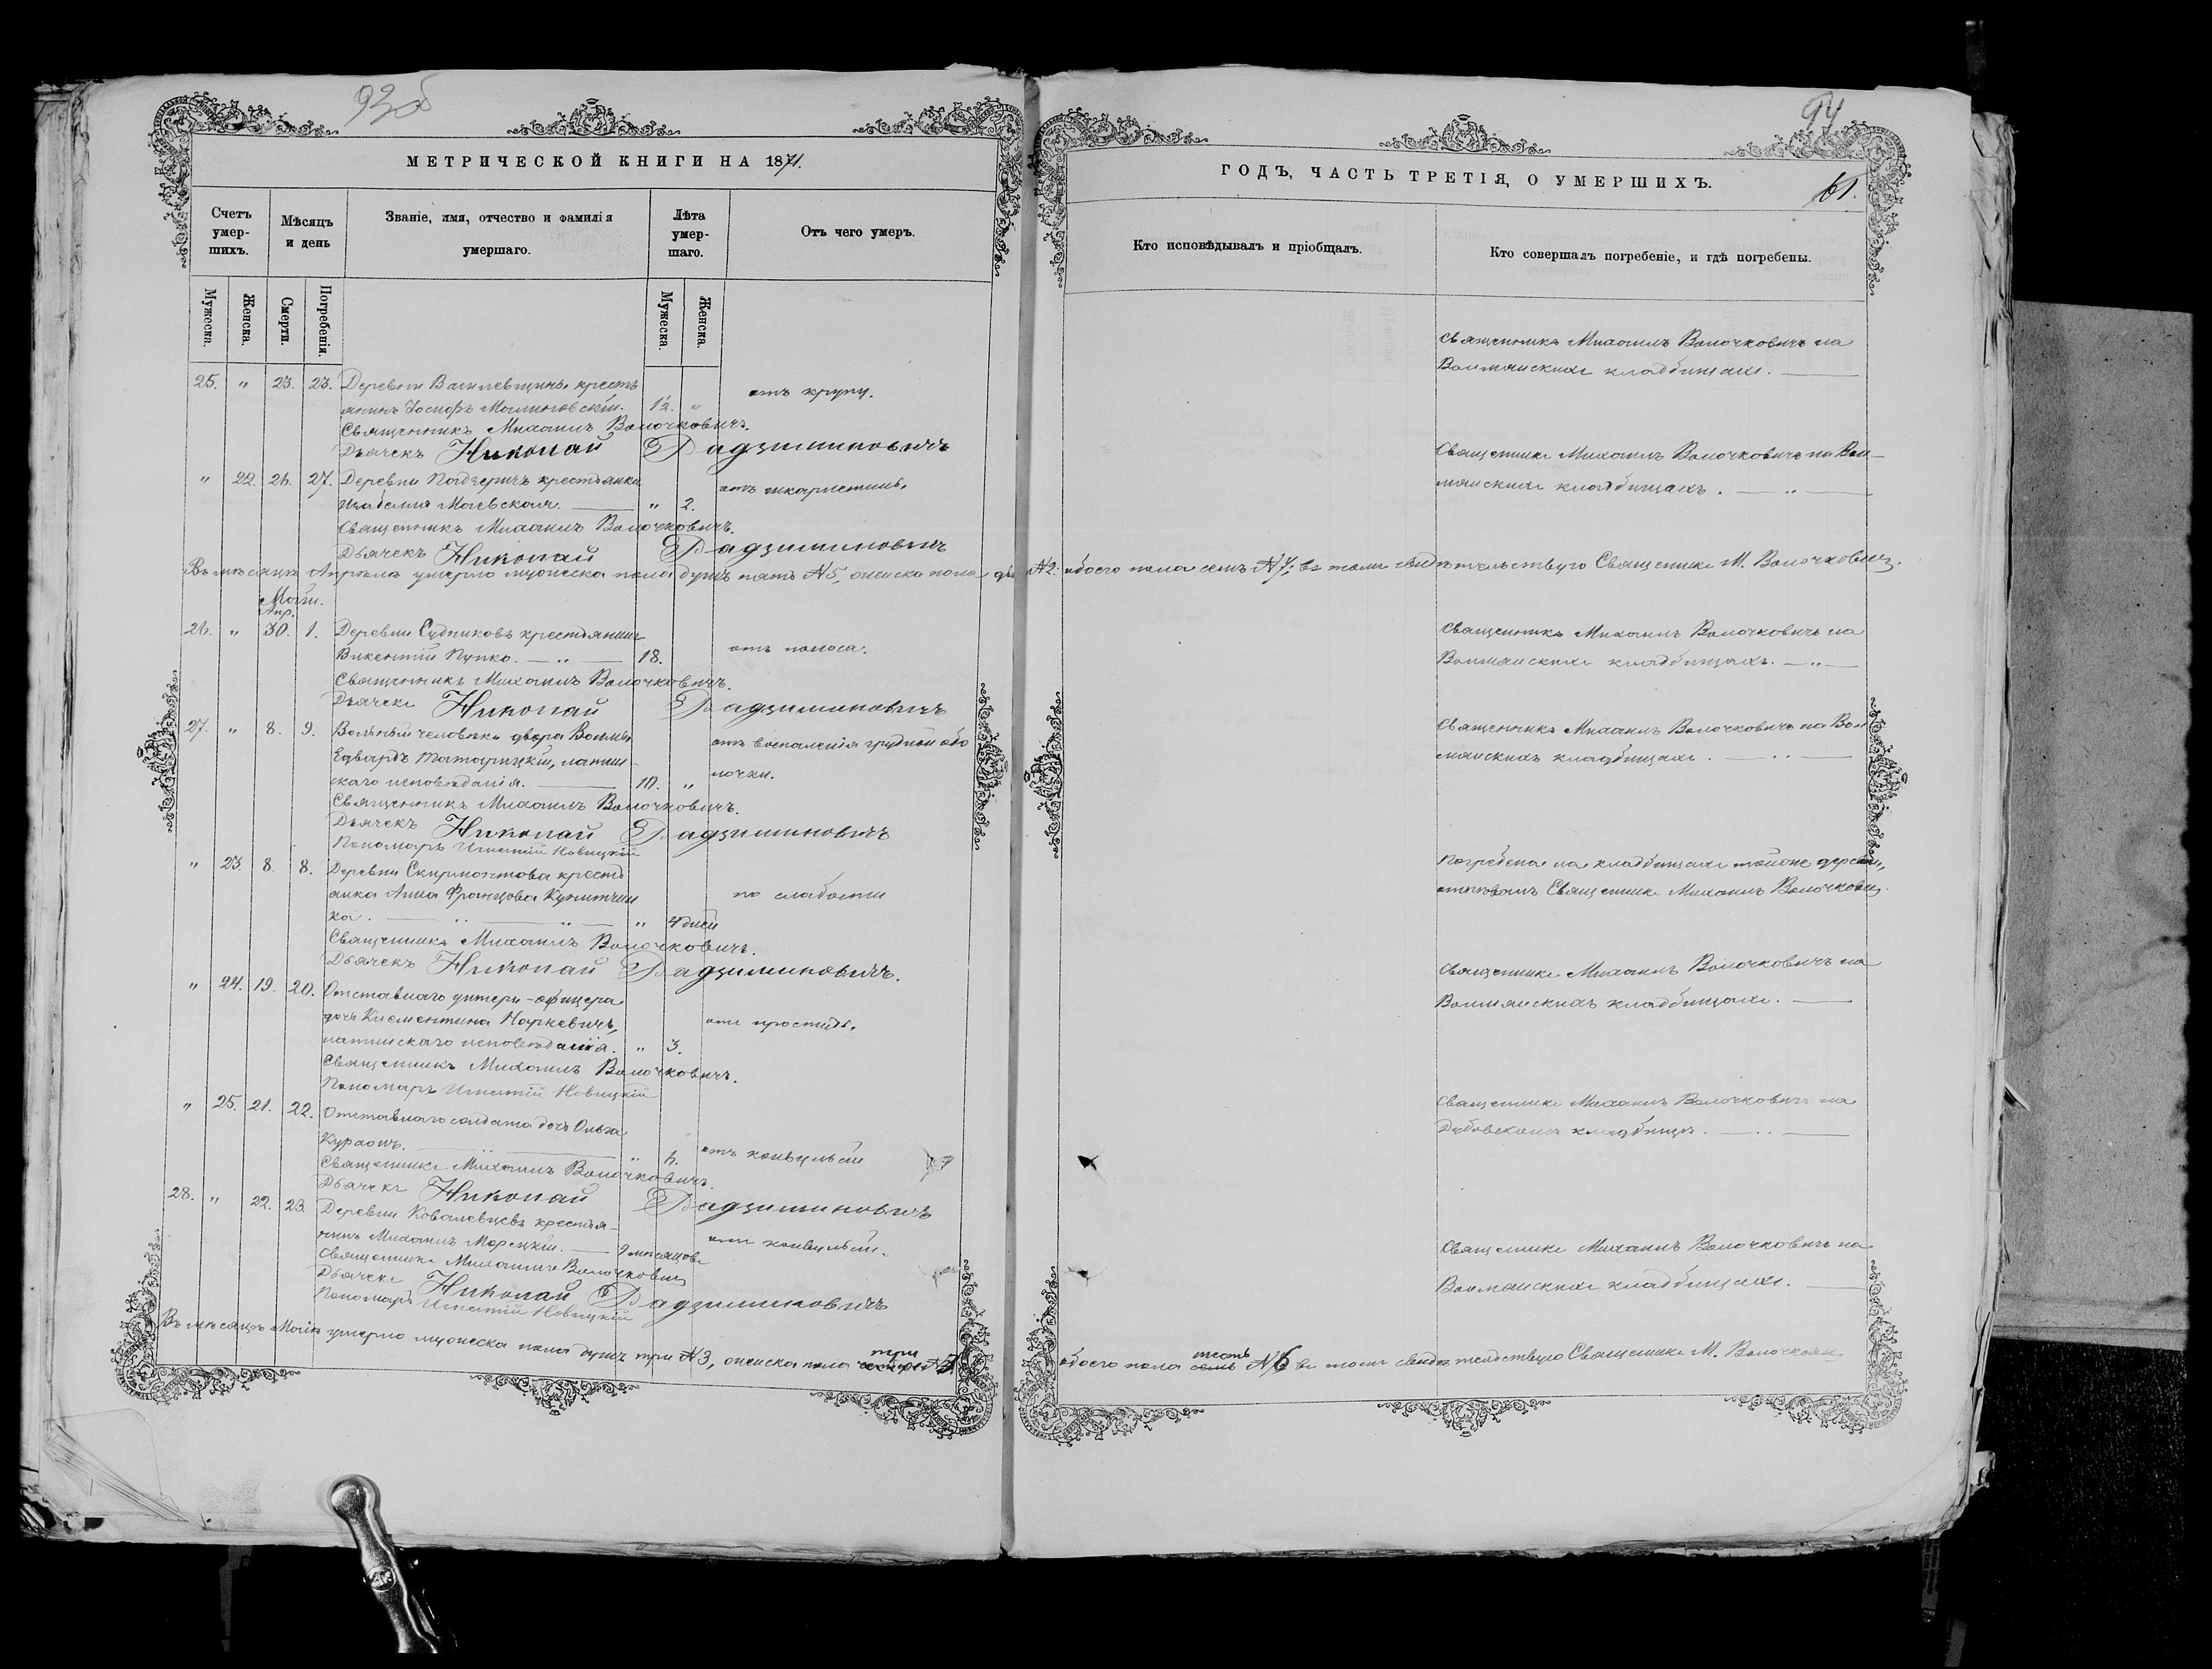 93об
МЕТРИЧЕСКОЙ КНИГИ НА 1871.
Счетъ умер-шихъ.
Мѣсяцъ и день
Званіе, имя, отчество и фамилія умершаго.
Лѣта умер-шаго.
Отъ чего умеръ.
Мужеска.
Женска.
Смерти.
Погребенія.
Мужеска.
Женска.
25. " 23. 23. Деревни Василевщины кресть
янинъ Іосифъ Малиновскій. 1½. " отъ крупу.
Священникъ Михаилъ Волочковичъ.
Дьячекъ Николай Радзиминовичъ
" 22. 26. 27. Деревни крестьянка отъ шкарлетины.
Изабелля Маевская. " 2.
Священникъ Михаилъ Волочковичъ.
Дьячекъ Николай Радзиминовичъ
Въ мѣсяцѣ Апрѣлѣ умерло мужеска пола душъ пять №5, женска пола двѣ №2.
Маій.
Апр.
26. " 30. 1. Деревни Судниковъ крестьянинъ
Викентій Пупко. — " — 18. отъ поноса.
Священникъ Михаилъ Волочковичъ.
Дьячекъ Николай Радзиминовичъ
27. " 8. 9. Вольный человѣкъ двора Волмы отъ воспаленія грудной обо
Едвардъ латин-
скаго исповѣданія. 10. " лочки.
Священникъ Михаилъ Волочковичъ.
Дьячекъ Николай Радзиминовичъ
Пономарь Игнатій Новицкій
" 23. 8. 8. Деревни Скирмонтова кресть
янка Анна Францова по слабости
ка. — " — " — " 4 дней
Священникъ Михаилъ Волочковичъ.
Дьячекъ Николай Радзиминовичъ.
" 24. 19. 20. Отставнаго унтеръ-офицера
дочь Клементина Наркевичъ, отъ простуды.
латинскаго исповѣданія. " 3.
Священникъ Михаилъ Волочковичъ.
Пономарь Игнатій Новицкій
" 25. 21. 22. Отставнаго солдата дочь Ольга
" отъ конвульсій
Священникъ Михаилъ Волочковичъ.
Дьячекъ Николай Радзиминовичъ
28. " 22. 23. Деревни Ковалевцевъ крестья-
нинъ Михаилъ Марецкій. — 9 мѣсяцовъ отъ конвульсій.
Священникъ Михаилъ Волочковичъ
Дьячекъ Николай Радзиминовичъ
Пономарь Игнатій Новицкій
Въ мѣсяцѣ Маіѣ умерло мужеска пола душъ три №3, женска пола три №3
94
ГОДЪ, ЧАСТЬ ТРЕТІЯ, О УМЕРШИХЪ.
61.
Кто исповѣдывалъ и пріобщалъ.
Кто совершалъ погребеніе, и гдѣ погребены.
Священникъ Михаилъ Волочковичъ на
Волмянскихъ кладбищахъ.
Священникъ Михаилъ Волочковичъ на Вол-
мянскихъ кладбищахъ. — " —
обоего пола семь №7; въ томъ свидѣтельствую Священникъ М. Волочковичъ.
Священникъ Михаилъ Волочковичъ на
Волмянскихъ кладбищахъ. — " —
Священникъ Михаилъ Волочковичъ на Вол
мянскихъ кладбищахъ.
Погребена на кладбищахъ тойже деревни,
отпѣвалъ Священникъ Михаилъ Волочковичъ.
Священникъ Михаилъ Волочковичъ на
Волмянскихъ кладбищахъ.
Священникъ Михаилъ Волочковичъ на
Дубовскомъ кладбищѣ.
Священникъ Михаилъ Волочковичъ на
Волмянскихъ кладбищахъ.
обоего пола шесть №6 въ томъ свидѣтельствую Священникъ М. Волочковичъ